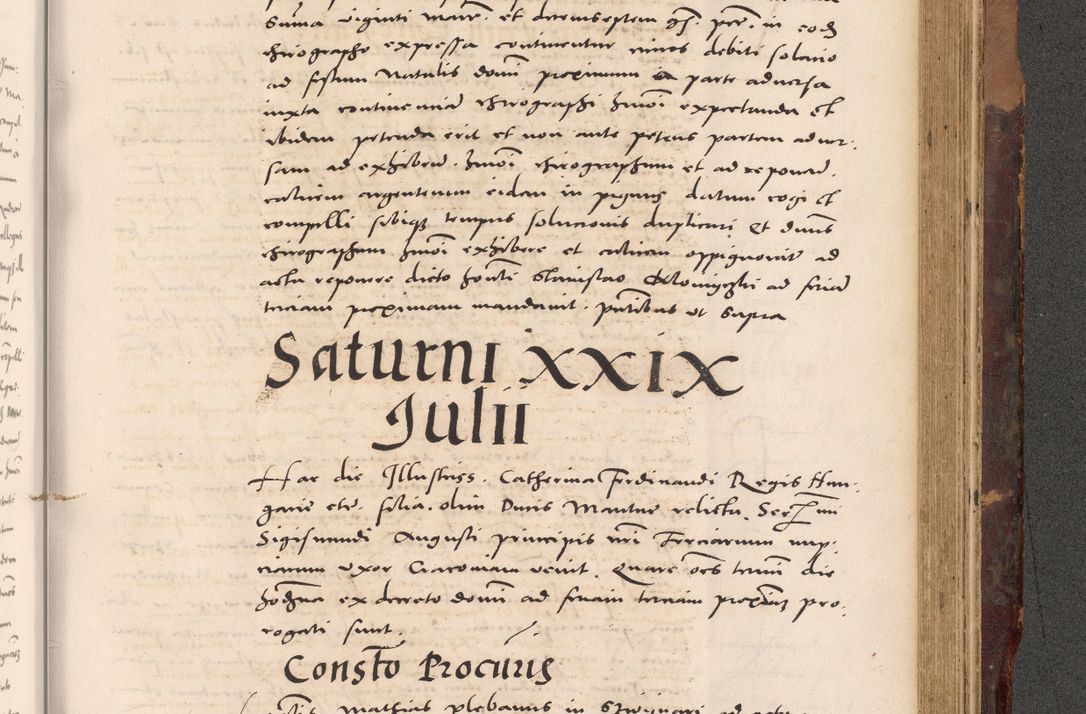 Suma viginti marc. et decemseptem gs. pecc. in eodẽ
chirographo expressa continentur debiti solario
ad festum Natalis domĩ proximum a parte adversa
iuxta continenciã chirographi hmõi expectanda et
ibidem petenda erit et non ante petens partem adver-
sam ad exhibend. hmõi chirographum et ad reponend.
cultrum argenteum eidem in pignus datum cogi et
compelli sibique tempus solucionis duplicari et
chirographum hmõi exhibere et cultrum oppignorat ad
acta reponere dicto Stanislao ad feriã
terciam proximam mandavit. pñtibus ut supra
Saturni XXIX
Julii
Hac die Illustriss. Catherina Ferdinandi Regis Hun-
garie etc. filia. olim Ducis Mantue relicta. Ser
Sigismundi Augusti principis nrĩ Terciarum nup-
ciarum uxor Cracoviam venit. Quare oẽs termĩ die
hodierna ex decreto domĩ ad feriam terciam proximã pro-
rogati sunt.
Constõ Procũris
Mathias plebanus in